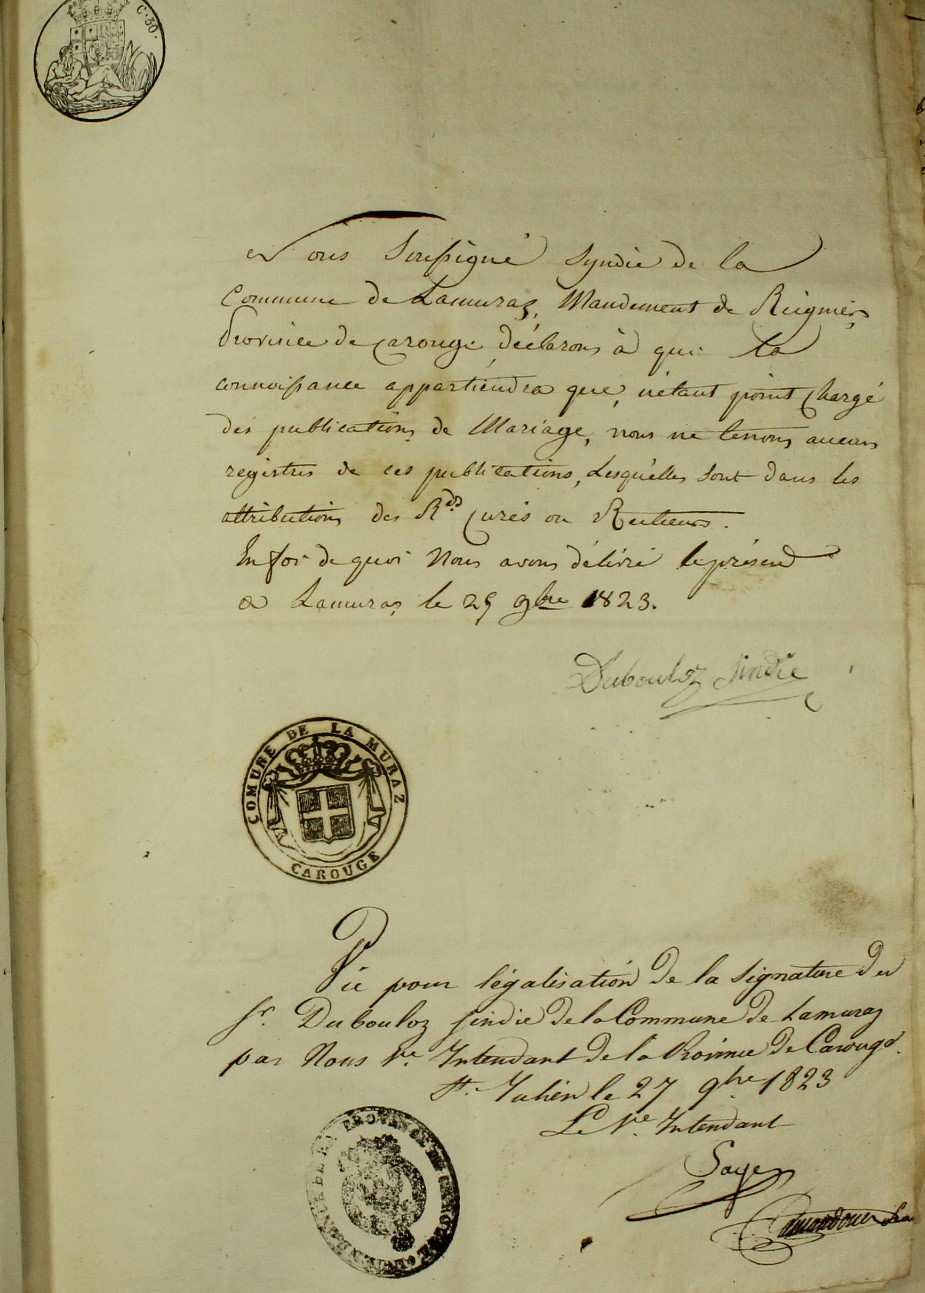 C. 50.
Nous Soussigné Syndic de la
Commune de Lamuraz, Mandement de Reignier
Province de Carouge, déclarons à qui la
connoissance appartiendra que, n'étant point Chargé
des publications de Mariage, nous ne tenons aucuns
registres de ces publications, Lesquelles sont dans les
attributions des Rds Curés ou Recteurs.
En foi de quoi Nous avons délivré le présent
à Lamuraz le 25 9bre 1823.
Dubouloz sindic
COMUNE DE LA MURAZ
CAROUGE
Vu pour légalisation de la signature du
Sr. Dubouloz sindic de la Commune de Lamuraz
par Nous Ve. Intendant de la Province de Carouge.
St. Julien le 27 9bre 1823
Le Ve. Intendant
PROVINCE DE CAROUGE